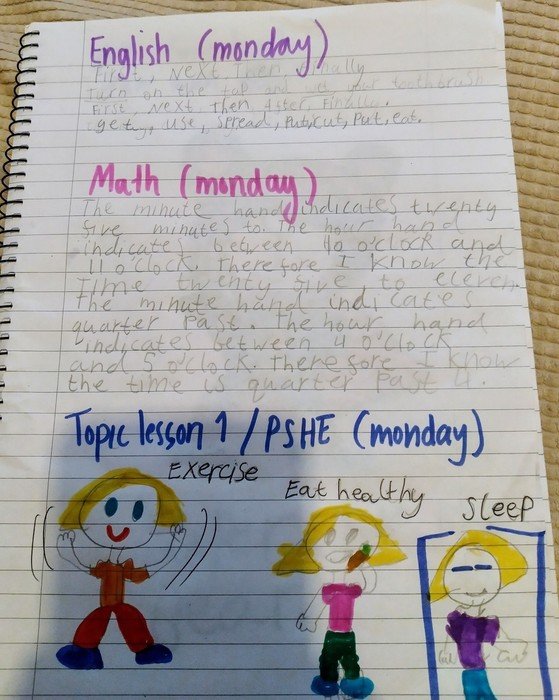 English (monday)
First, Next, Then, Finally
Turn on the tap and wet your toothbrush
First, Next, Then, After, Finally.
get, use, spread, put, cut, put, eat.
Math (monday)
The minute hand indicates twenty
five minutes to. The hour hand
indicates between 10 o'clock and
11 o'clock. Therefore I know the
time twenty five to eleven.
The minute hand indicates
quarter past. The hour hand
indicates between 4 o'clock
and 5 o'clock. Therefore I know
the time is quarter past 4.
Topic lesson 1 / PSHE (monday)
Exercise
Eat healthy
Sleep